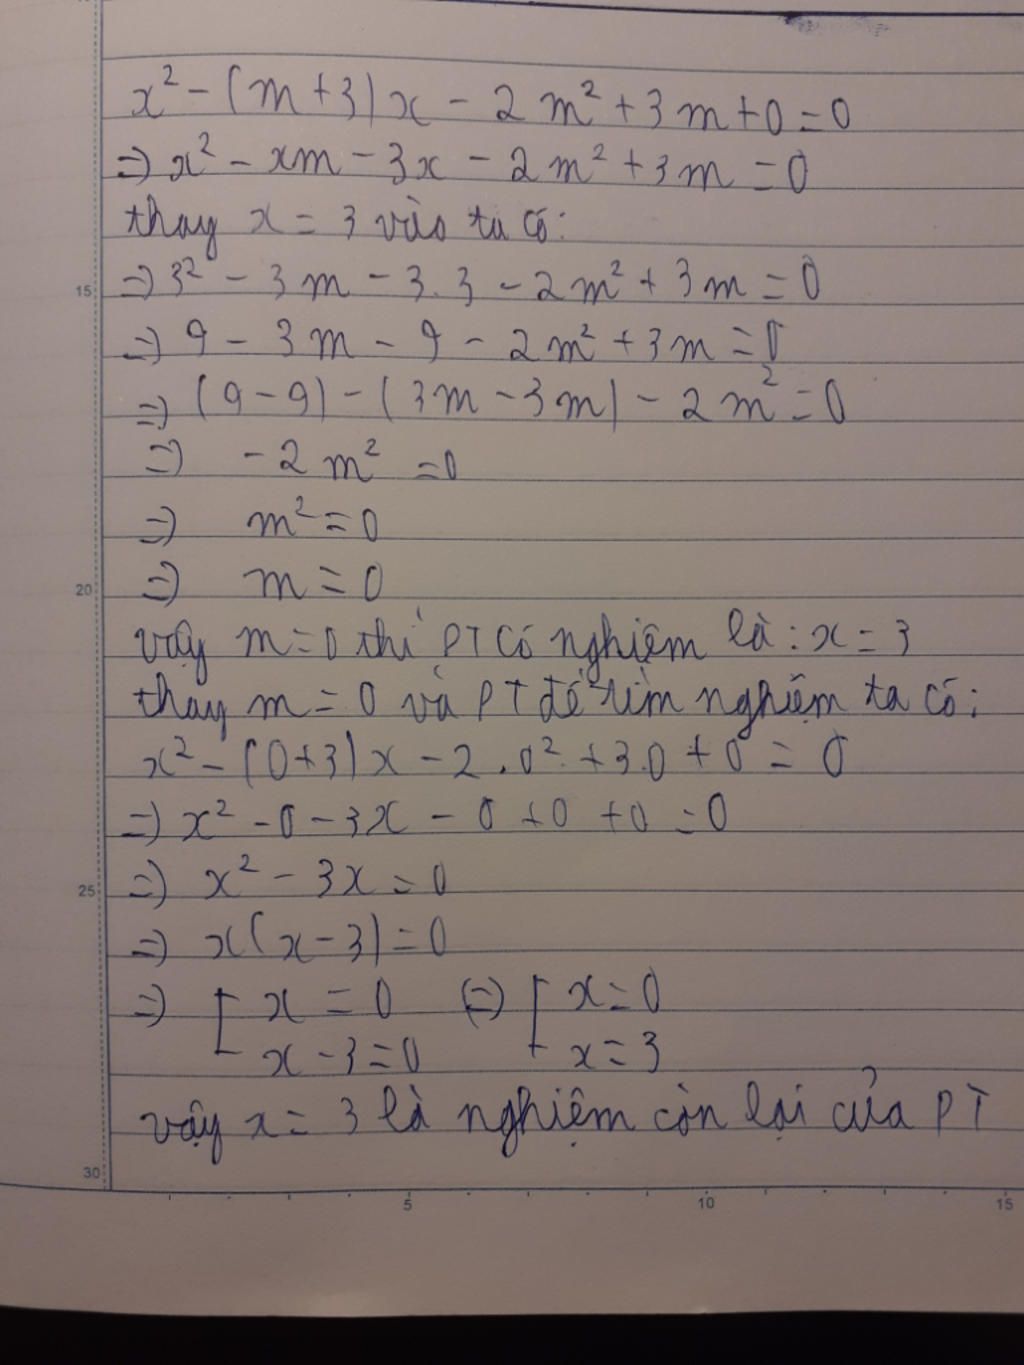 x² - (m+3)x - 2m² + 3m + 0 = 0
=) x² - xm - 3x - 2m² + 3m = 0
thay x = 3 vào ta có:
=) 3² - 3m - 3.3 - 2m² + 3m = 0
15
=) 9 - 3m - 9 - 2m² + 3m = 0
=) (9 - 9) - (3m - 3m) - 2m² = 0
=) -2m² = 0
=) m² = 0
=) m = 0
20
vậy m = 0 thì PT có nghiệm là: x = 3
thay m = 0 và PT để tìm nghiệm ta có:
x² - (0+3)x - 2.0² + 3.0 + 0 = 0
=) x² - 0 - 3x - 0 + 0 + 0 = 0
=) x² - 3x = 0
25
=) x(x - 3) = 0
=) [ x = 0 (=) [ x = 0
x - 3 = 0 x = 3
vậy x = 3 là nghiệm còn lại của PT
30
5 10 15